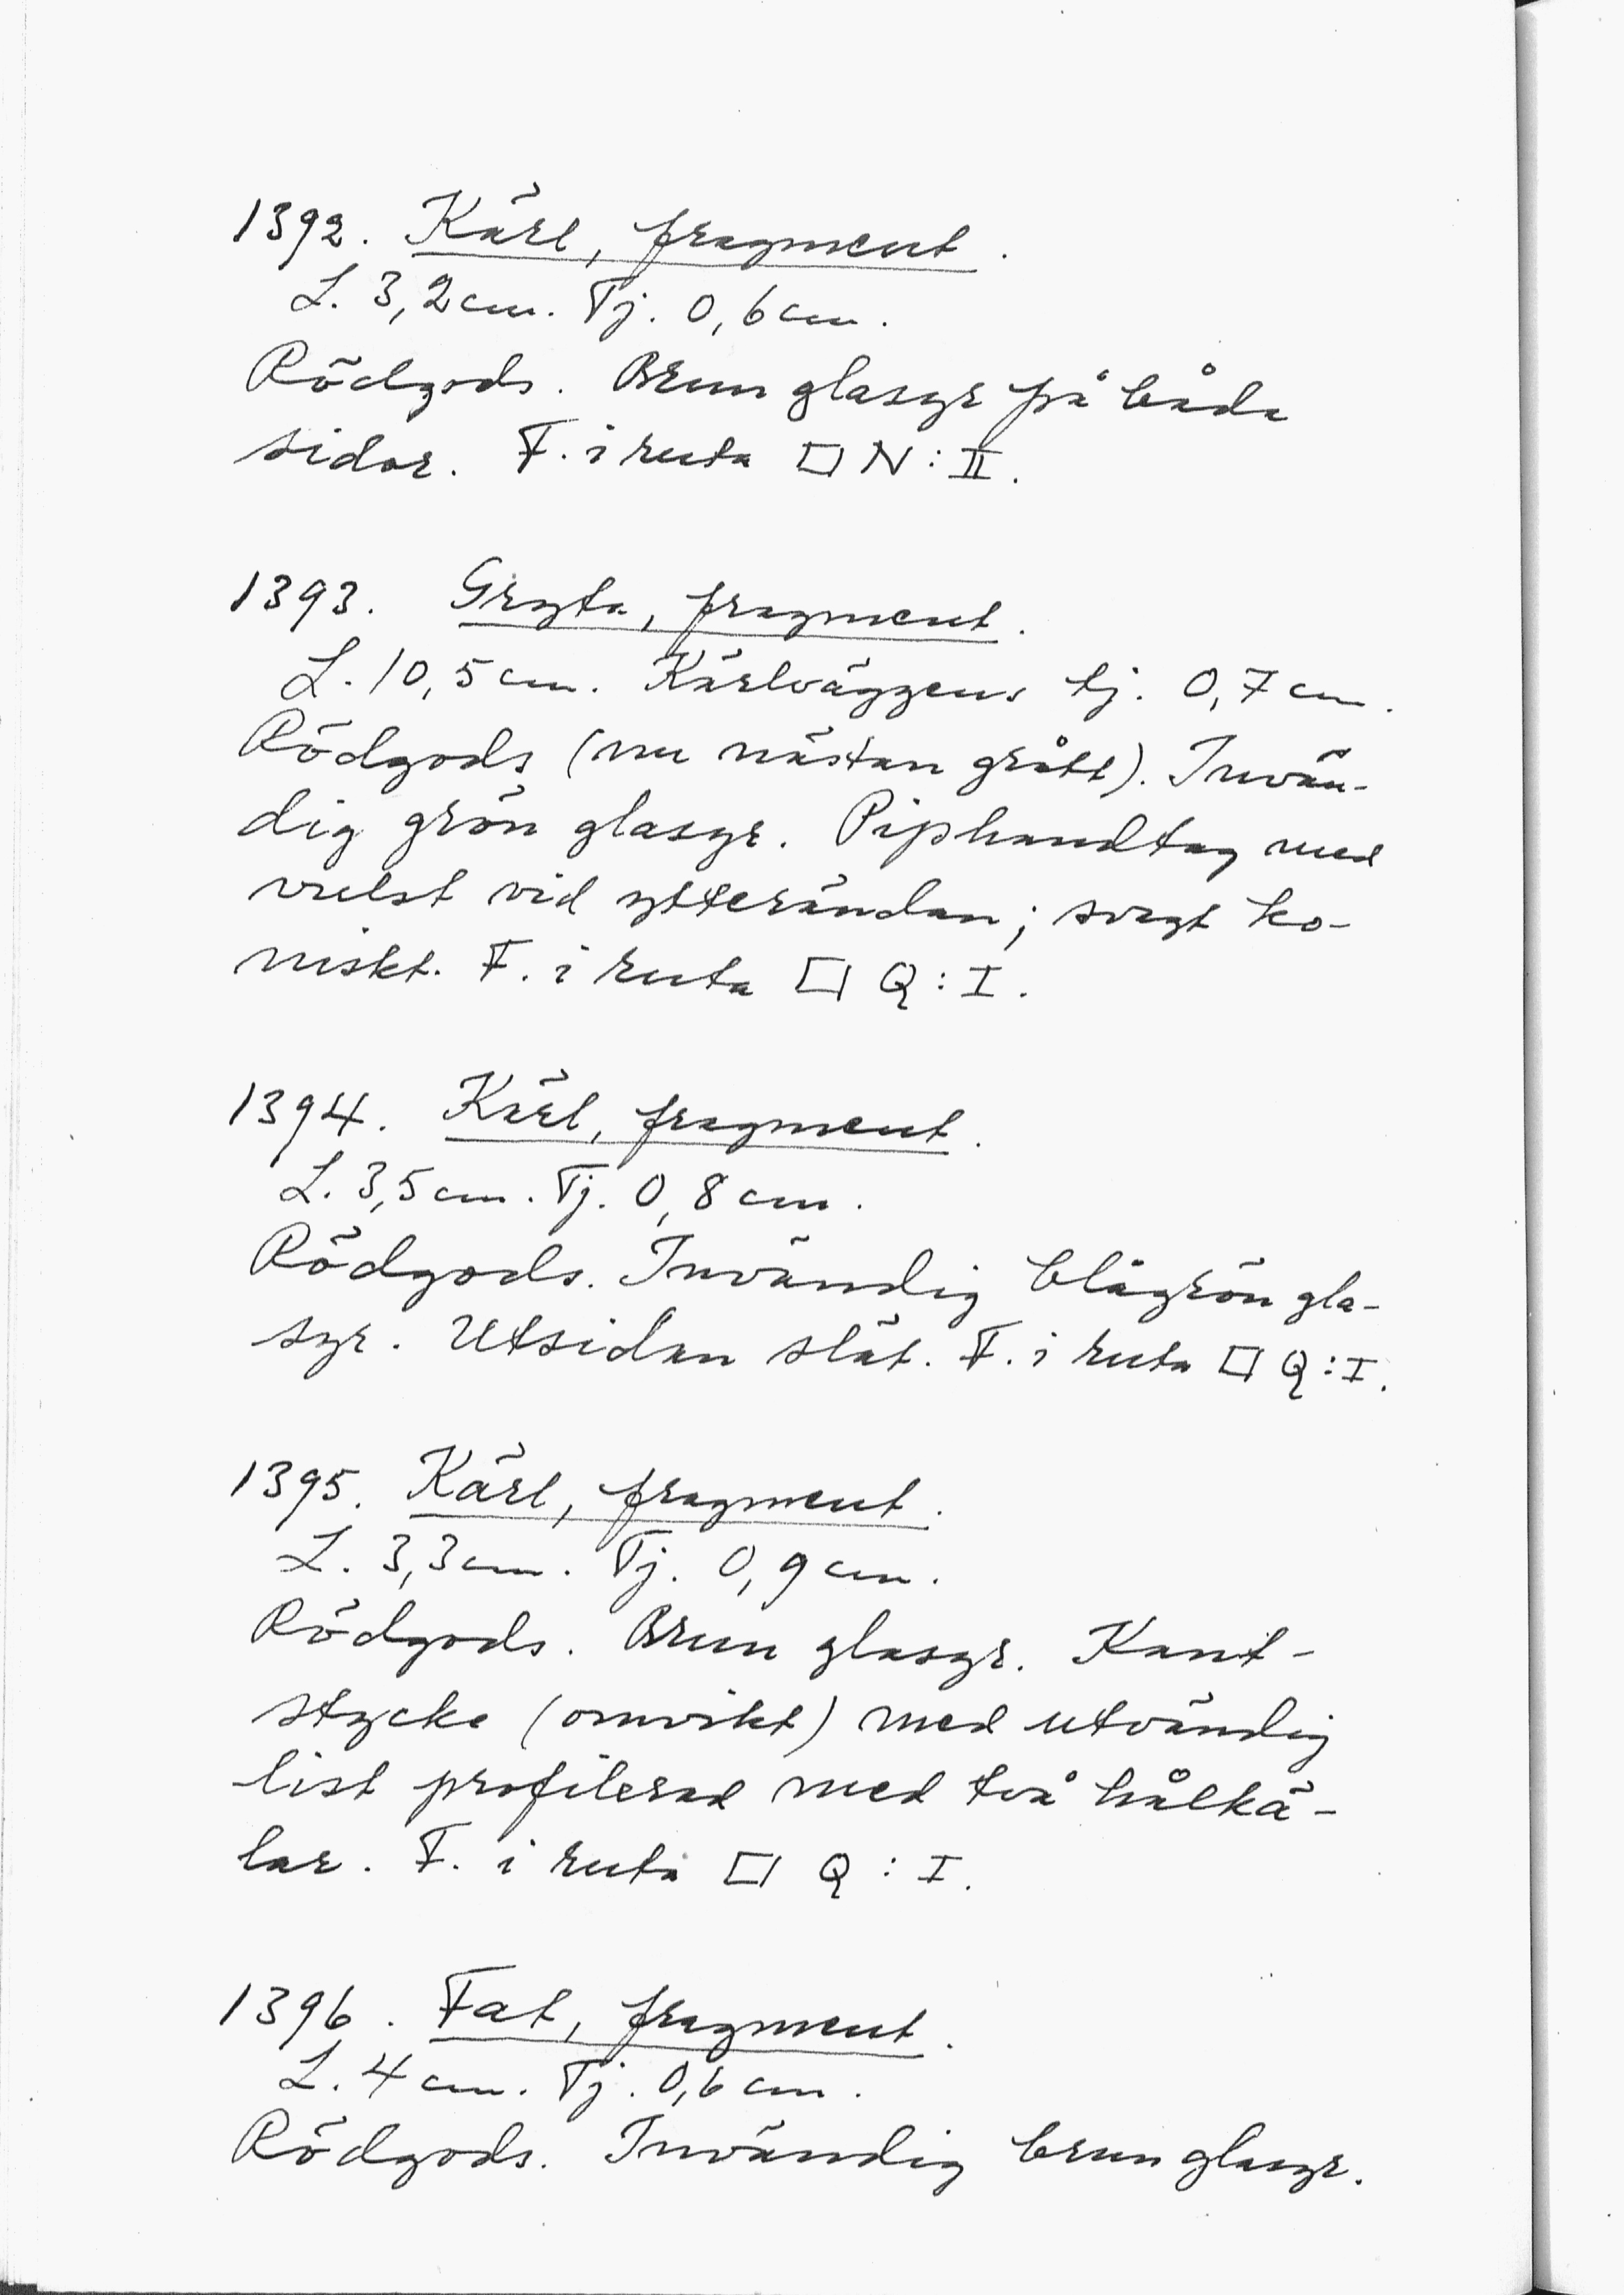 1392. Kärl, fragment.
L. 3,2 cm. Tj. 0,6 cm.
Rödgods. Brun glasyr på båda
sidor. F. i ruta □ N : II.
1393. Gryta, fragment.
L. 10,5 cm. Kärlväggens tj. 0,7 cm.
Rödgods (nu nästan grått). Invän-
dig grön glasyr. Piphandtag med
vulst vid ytterändan; svagt ko-
niskt. F. i ruta □ Q : I.
1394. Kärl, fragment.
L. 3,5 cm. Tj. 0,8 cm.
Rödgods. Invändig blågrön gla-
syr. Utsidan slät. F. i ruta □ Q : I.
1395. Kärl, fragment.
L. 3,3 cm. Tj. 0,9 cm.
Rödgods. Brun glasyr. Kant-
stycke (omvikt) med utvändig
list profilerad med två hålkä-
lar. F. i ruta □ Q : I.
1396. Fat, fragment.
L. 4 cm. Tj. 0,6 cm.
Rödgods. Invändig brun glasyr.